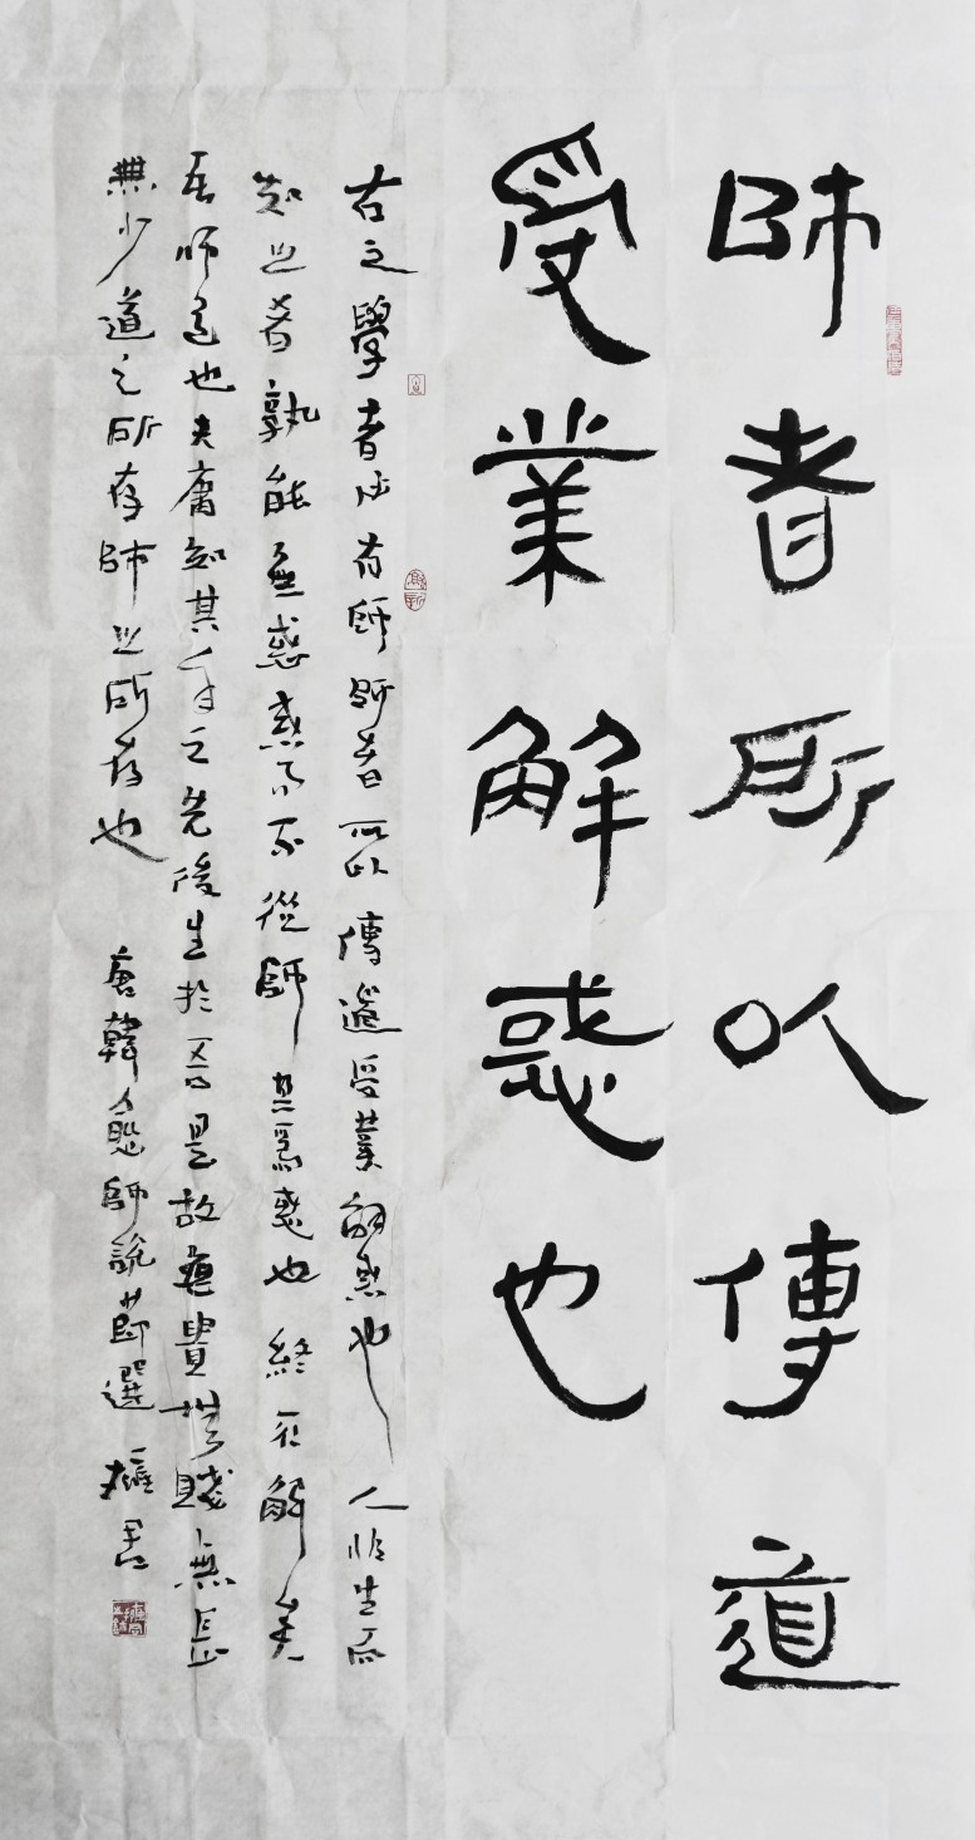 師者所以傳道
受業解惑也
古之學者必有師師者所以傳道受業解惑也人非生而
知之者孰能無惑惑而不從師其爲惑也終不解矣
吾師道也夫庸知其年之先後生於吾是故無貴無賤無長
無少道之所存師之所存也 唐韓愈師說節選